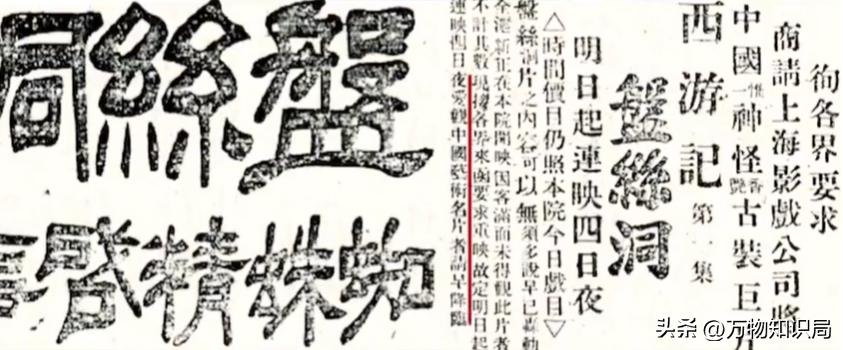 徇各界要求
商請上海影戲公司將
中國惟一神怪香艷古裝巨片
西游記 第一集
盤絲洞
明日起連映四日夜
△時間價目仍照本院今日戲目▽
盤絲洞片之內容可以無須多說早已轟動
全滬新正在本院開映因客滿而未得觀此片者
不計其數現接各界來函要求重映故定明日起
連映四日夜愛觀中國藝術名片者請早降臨
盤絲
蜘蛛精
头条 @万物知识局